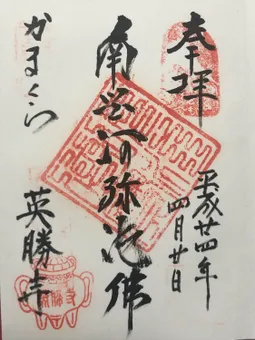 奉拝
平成廿四年
四月廿日
南無阿弥陀佛
かまくら
英勝寺